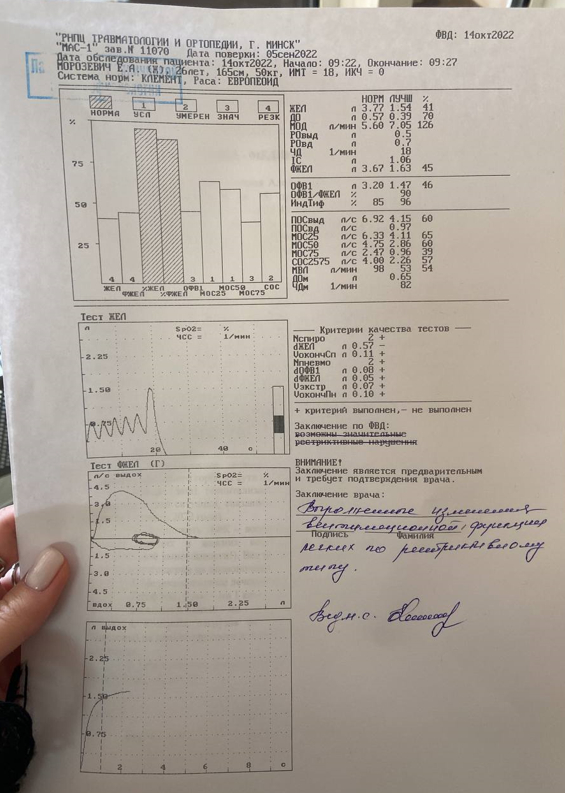 "РНПЦ ТРАВМАТОЛОГИИ И ОРТОПЕДИИ, Г. МИНСК" ФВД: 14окт2022
"МАС-1" зав.№ 11070 Дата поверки: 05сен2022
Дата обследования пациента: 14окт2022, Начало: 09:22, Окончание: 09:27
МОРОЗЕВИЧ Е.А. (Ж), 26лет, 165см, 50кг, ИМТ = 18, ИКЧ = 0
Система норм: КЛЕМЕНТ, Раса: ЕВРОПЕОИД
1 2 3 4
НОРМА УСЛ УМЕРЕН ЗНАЧ РЕЗК
%
75
50
25
4 4 3 1 1 3 2
ЖЕЛ %ЖЕЛ ОФВ1 МОС50 СОС
ФЖЕЛ %ФЖЕЛ МОС25 МОС75
НОРМ ЛУЧШ %
ЖЕЛ л 3.77 1.54 41
ДО л 0.57 0.39 70
МОД л/мин 5.60 7.05 126
РОвыд л 0.5
РОвд л 0.7
ЧД 1/мин 18
IC л 1.06
ФЖЕЛ л 3.67 1.63 45
ОФВ1 л 3.20 1.47 46
ОФВ1/ФЖЕЛ % 90
ИндТиф % 85 96
ПОСвыд л/с 6.92 4.15 60
ПОСвд л/с 0.97
МОС25 л/с 6.33 4.11 65
МОС50 л/с 4.75 2.86 60
МОС75 л/с 2.47 0.96 39
СОС2575 л/с 4.00 2.26 57
МВЛ л/мин 98 53 54
ДОм л 0.65
ЧДм 1/мин 82
Тест ЖЕЛ
л SpO2= %
ЧСС = 1/мин
2.25
1.50
0.75
20 40 с
Критерии качества тестов
Nспиро 2 +
dЖЕЛ л 0.57 -
VокончСп л 0.11 +
Nпневмо 2 +
dОФВ1 л 0.08 +
dФЖЕЛ л 0.05 +
Vэкстр л 0.07 +
VокончПн л 0.10 +
+ критерий выполнен,- не выполнен
Заключение по ФВД:
возможны значительные
рестриктивные нарушения
ВНИМАНИЕ!
Заключение является предварительным
и требует подтверждения врача.
Заключение врача:
Выраженные изменения
вентиляционной функции
Подпись Фамилия
легких по рестриктивному
типу.
Тест ФЖЕЛ (Г)
л/с выдох SpO2= %
ЧСС = 1/мин
4.5
3.0
1.5
1.5
3.0
4.5
вдох 0.75 1.50 2.25 л
л выдох
2.25
1.50
0.75
2 4 6 8 с